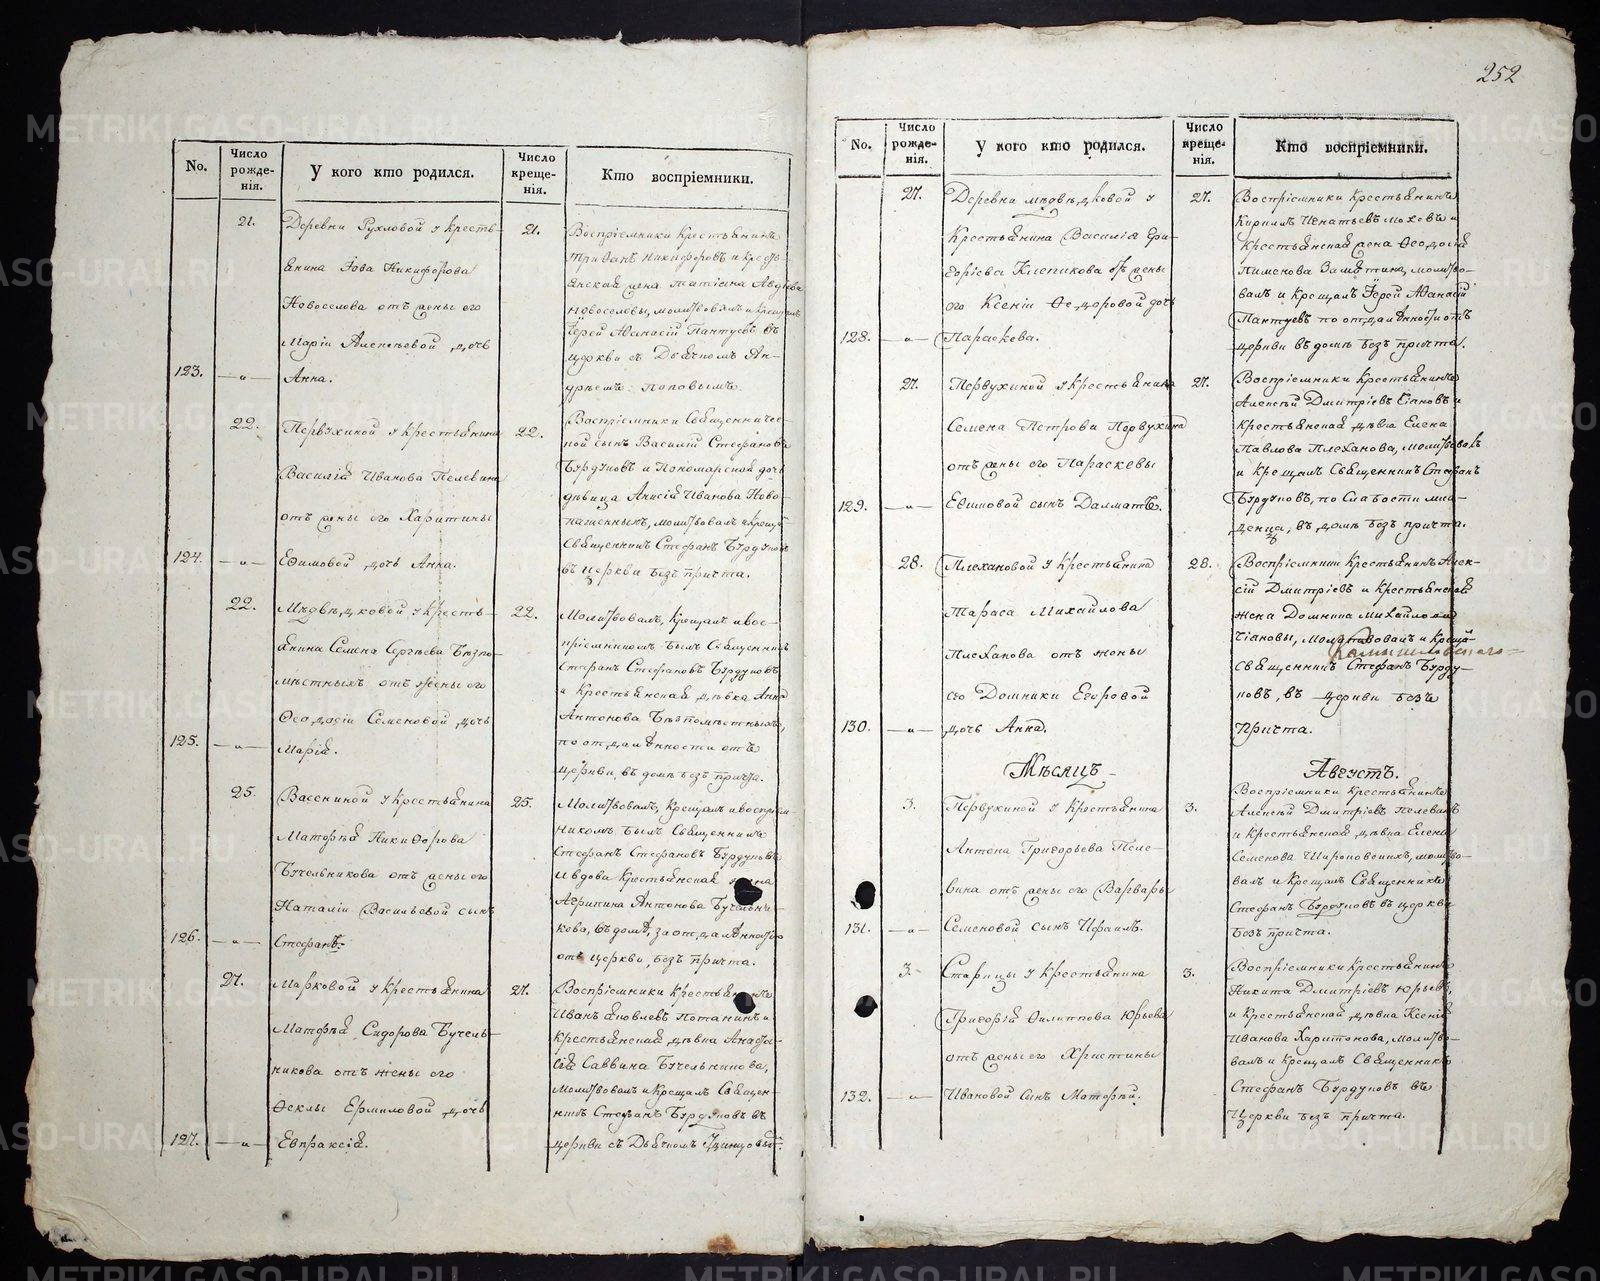 252
No.
Число рожде-нія.
У кого кто родился.
Число креще-нія.
Кто воспріемники.
21.
Деревни Рухловой у кресть-
21.
Воспріемники крестьянинъ
янина Іова Никифорова
Трифанъ Никифоровъ и кресть-
Новоселова отъ жены его
янская жена Татіана Авдѣева
Новоселовы, молитвовалъ и крещалъ
Маріи Алексѣевой дочь
Іерей Афанасій Пантуевъ въ
церкви съ Дьячкомъ Ан-
123.
—„—
Анна.
дрѣемъ Поповымъ.
22.
Первухиной у крестьянина
22.
Воспріемники Священниче-
ской сынъ Василій Стефановъ
Василія Иванова Пелевина
Бурдуковъ и Пономарская дочь
дѣвица Анисія Иванова Ново-
отъ жены его Харитины
пашенныхъ, молитвовалъ и крещ.
Священникъ Стефанъ Бурдуковъ
124.
—„—
Ефимовой дочь Анна.
въ церкви безъ причта.
22.
Мѣдвѣдковой у кресть-
22.
Молитвовалъ, крещалъ и вос-
янина Семена Сергѣева Безпо-
пріемникомъ былъ Священникъ
Стефанъ Стефановъ Бурдуковъ
мѣстныхъ отъ жены его
и крестьянская дѣвка Анна
Ѳеодосіи Семеновой дочь
Антонова Безпомѣстныхъ,
125.
—„—
Марія.
по отдалѣнности отъ
церкви, въ домѣ безъ причта.
25.
Васениной у крестьянина
25.
Молитвовалъ, крещалъ и воспріем
Матѳѣя Никифорова
никомъ былъ Священникъ
Стефанъ Стефановъ Бурдуковъ
Бучельникова отъ жены его
и вдова крестьянская жена
Наталіи Васильевой сынъ
Агрипина Антонова Бучельни-
126.
—„—
Стефанъ.
кова, въ домѣ, за отдалѣнностію
отъ церкви, безъ причта.
27.
Марковой у крестьянина
27.
Воспріемники крестьянинъ
Матѳѣя Сидорова Бучель-
Иванъ Яковлевъ Потанинъ и
крестьянская дѣвка Анаста-
никова отъ жены его
сія Саввина Бучельникова,
молитвовалъ и крещалъ Священ-
Ѳеклы Ермиловой дочь
никъ Стефанъ Бурдуковъ въ
127.
—„—
Евпраксія.
церкви съ Дьячкомъ
No.
Число рожде-нія.
У кого кто родился.
Число креще-нія.
Кто воспріемники.
27.
Деревни Мѣдвѣдковой у
27.
Воспріемники крестьянинъ
Кирилъ Игнатьевъ Моховъ и
крестьянина Василія Гри-
крестьянская жена Ѳеодосія
горіева Клепикова отъ жены
Пименова Замятина, молитво-
валъ и крещалъ Іерей Афанасій
его Ксеніи Ѳедоровой дочь
Пантуевъ по отдалѣнности отъ
128.
—„—
Параскева.
церкви въ домѣ безъ причта.
27.
Первухиной у крестьянина
27.
Воспріемники крестьянинъ
Алексѣй Дмитріевъ Стяновъ и
Семена Петрова Первухина
крестьянская дѣвка Елена
Павлова Плеханова, молитвовалъ
отъ жены его Параскевы
и крещалъ Священникъ Стефанъ
129.
—„—
Ефимовой сынъ Далматъ.
Бурдуковъ, по слабости мла-
денца, въ домѣ безъ причта.
28.
Плехановой у крестьянина
28.
Воспріемники крестьянинъ Алек-
сѣй Дмитріевъ и крестьянская
Тараса Михайлова
жена Домника Михайлова
Стяновы, молитвовалъ и крещ.
Плеханова отъ жены
Камышловскаго
священникъ Стефанъ Бурду-
его Домники Егоровой
ковъ, въ церкви безъ
130.
—„—
дочь Анна.
причта.
Мѣсяцъ
Августъ.
3.
Первухиной у крестьянина
3.
Воспріемники крестьянинъ
Алексѣй Дмитріевъ Пелевинъ
Антона Григорьева Пеле-
и крестьянская дѣвка Елена
Семенова Широковскихъ, молитво-
вина отъ жены его Варвары
валъ и крещалъ Священникъ
Стефанъ Бурдуковъ въ церкви
131.
—„—
Семеновой сынъ Ифаилъ.
безъ причта.
3.
Старицы у крестьянина
3.
Воспріемники крестьянинъ
Никита Дмитріевъ Юрьевъ,
Григорія Филиппова Юрьева
и крестьянская дѣвка Ксенія
Иванова Харитонова, молитво-
отъ жены его Христины
валъ и крещалъ Священникъ
132.
—„—
Ивановой сынъ Матѳѣй.
Стефанъ Бурдуковъ въ
церкви безъ причта.
METRIKI.GASO-URAL.RU